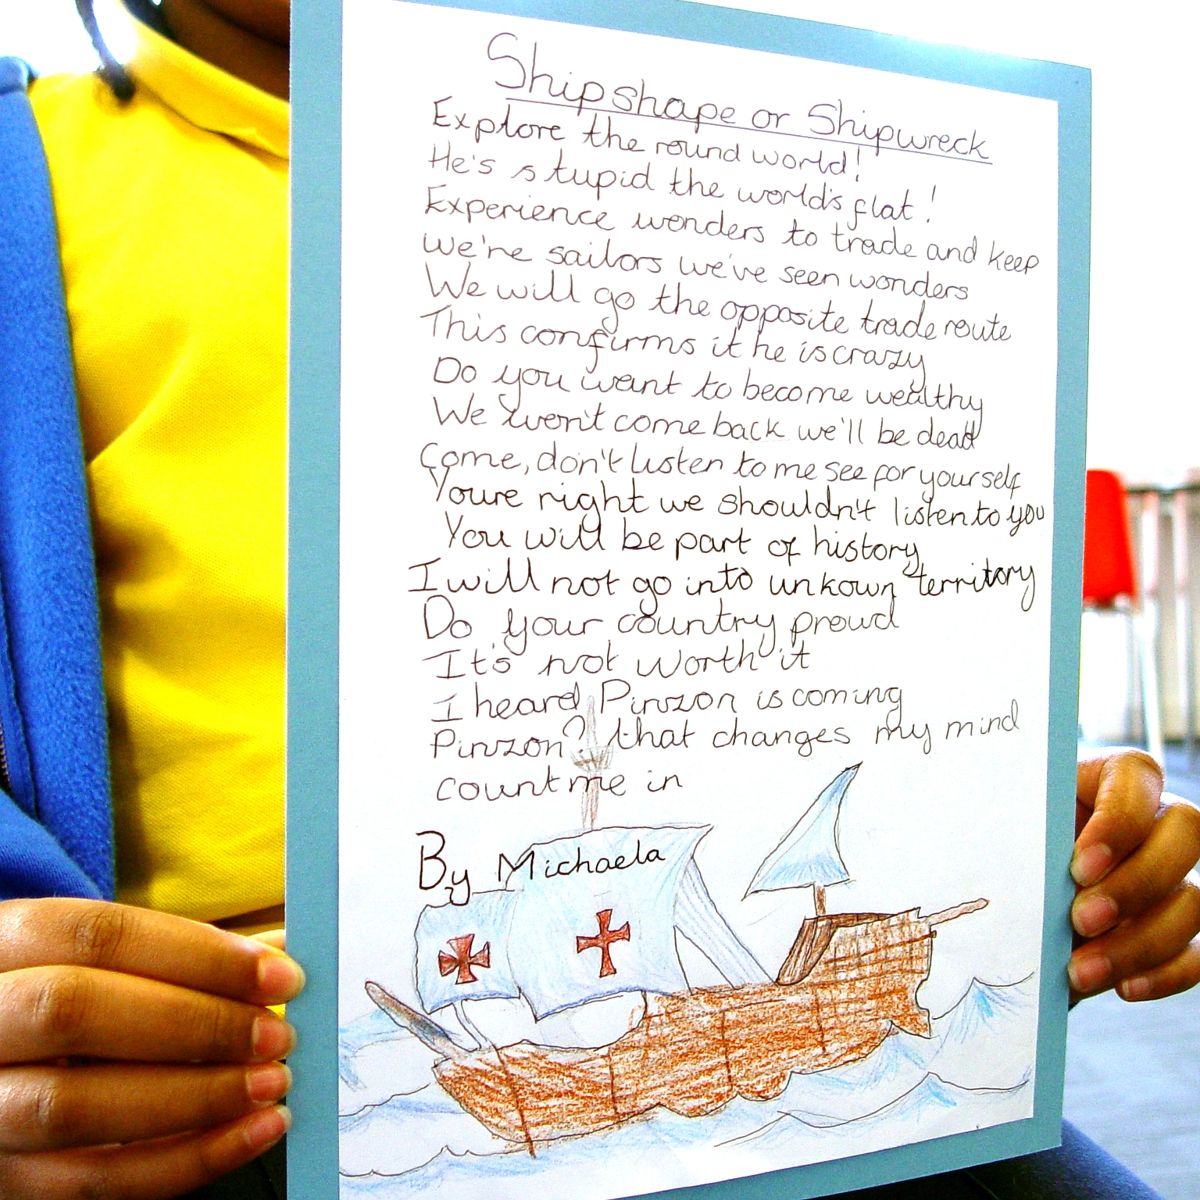 Shipshape or Shipwreck
Explore the round world!
He's stupid the world's flat!
Experience wonders to trade and keep
we're sailors we've seen wonders
We will go the opposite trade route
This confirms it he is crazy
Do you want to become wealthy
We won't come back we'll be dead
Come, don't listen to me see for yourself
Youre right we shouldn't listen to you
You will be part of history
I will not go into unkown territory
Do your country proud
It's not worth it
I heard Pinzon is coming
Pinzon? that changes my mind
count me in
By Michaela